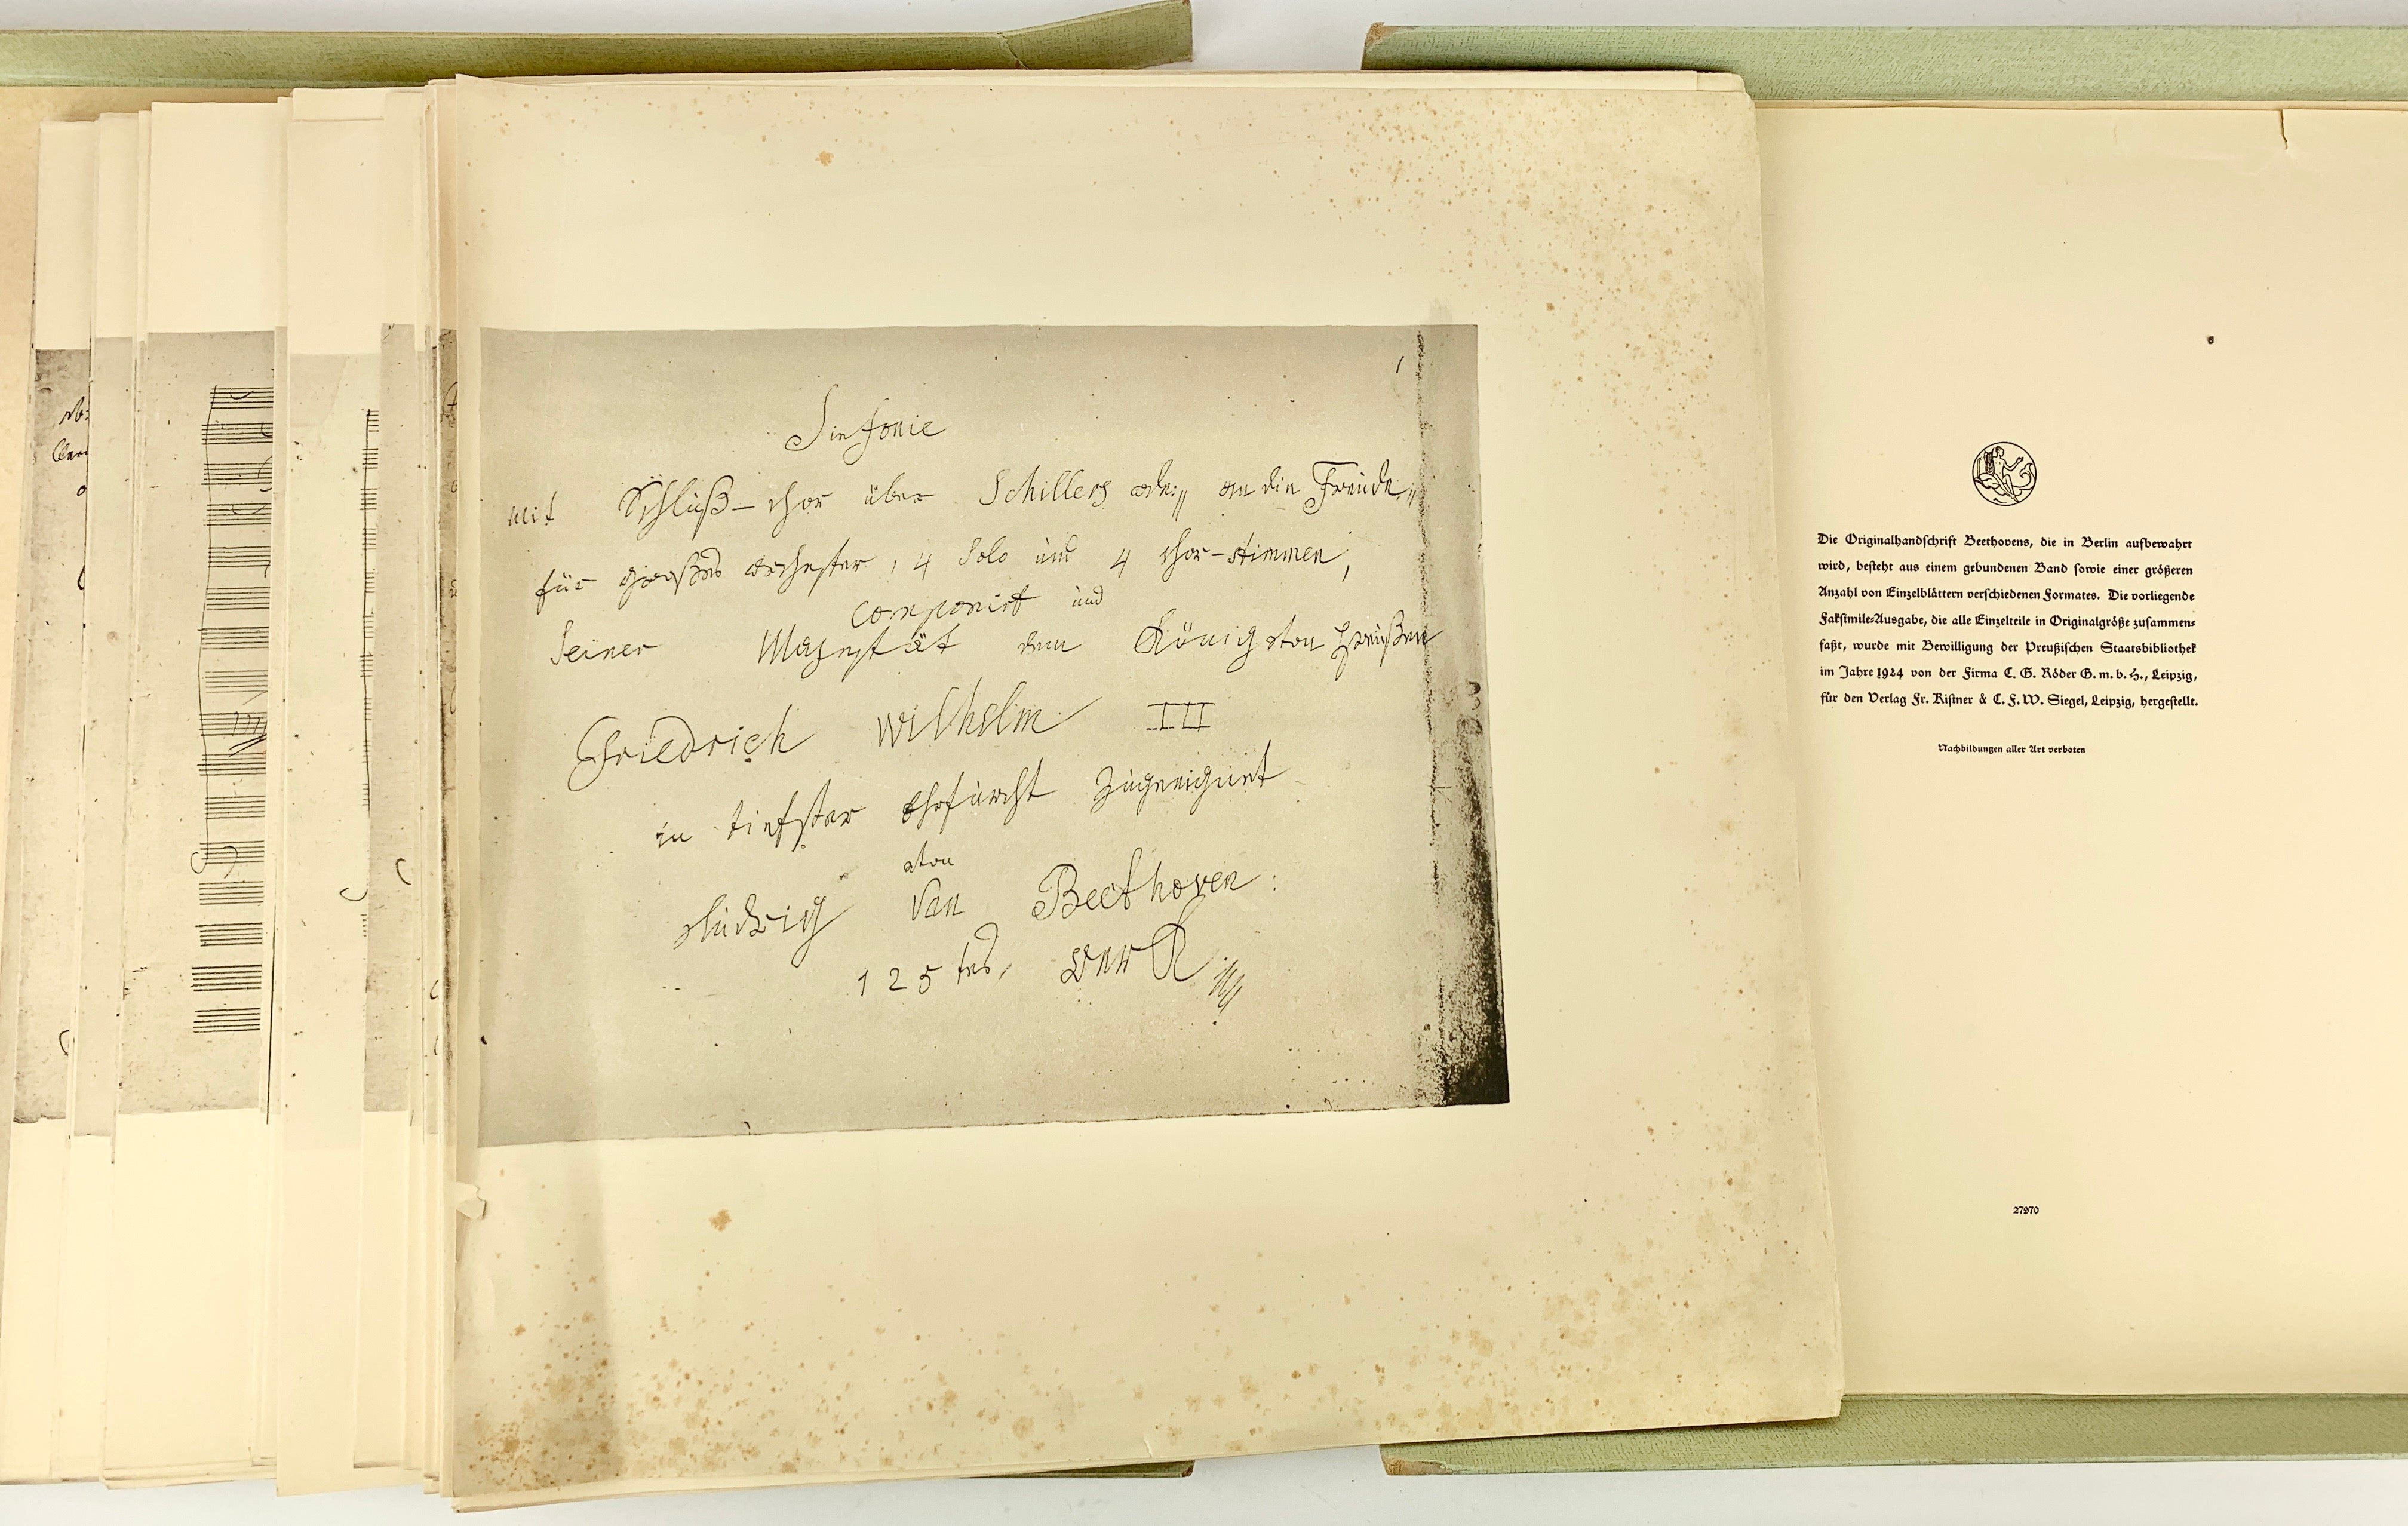 1
Sinfonie
mit Schluß-chor über Schillers ode: „an die Freude„
für großes orchester, 4 Solo und 4 chor-stimmen,
componirt und
Seiner Majestät dem König von Preußen
Friedrich Wilhelm III
in tiefster Ehrfurcht zugeeignet
von
Ludwig van Beethoven:
125tes, Werk
Die Originalhandschrift Beethovens, die in Berlin aufbewahrt
wird, besteht aus einem gebundenen Band sowie einer größeren
Anzahl von Einzelblättern verschiedenen Formates. Die vorliegende
Faksimile-Ausgabe, die alle Einzelteile in Originalgröße zusammen-
faßt, wurde mit Bewilligung der Preußischen Staatsbibliothek
im Jahre 1924 von der Firma C. G. Röder G. m. b. H., Leipzig,
für den Verlag Fr. Kistner & C. F. W. Siegel, Leipzig, hergestellt.
Nachbildungen aller Art verboten
27970